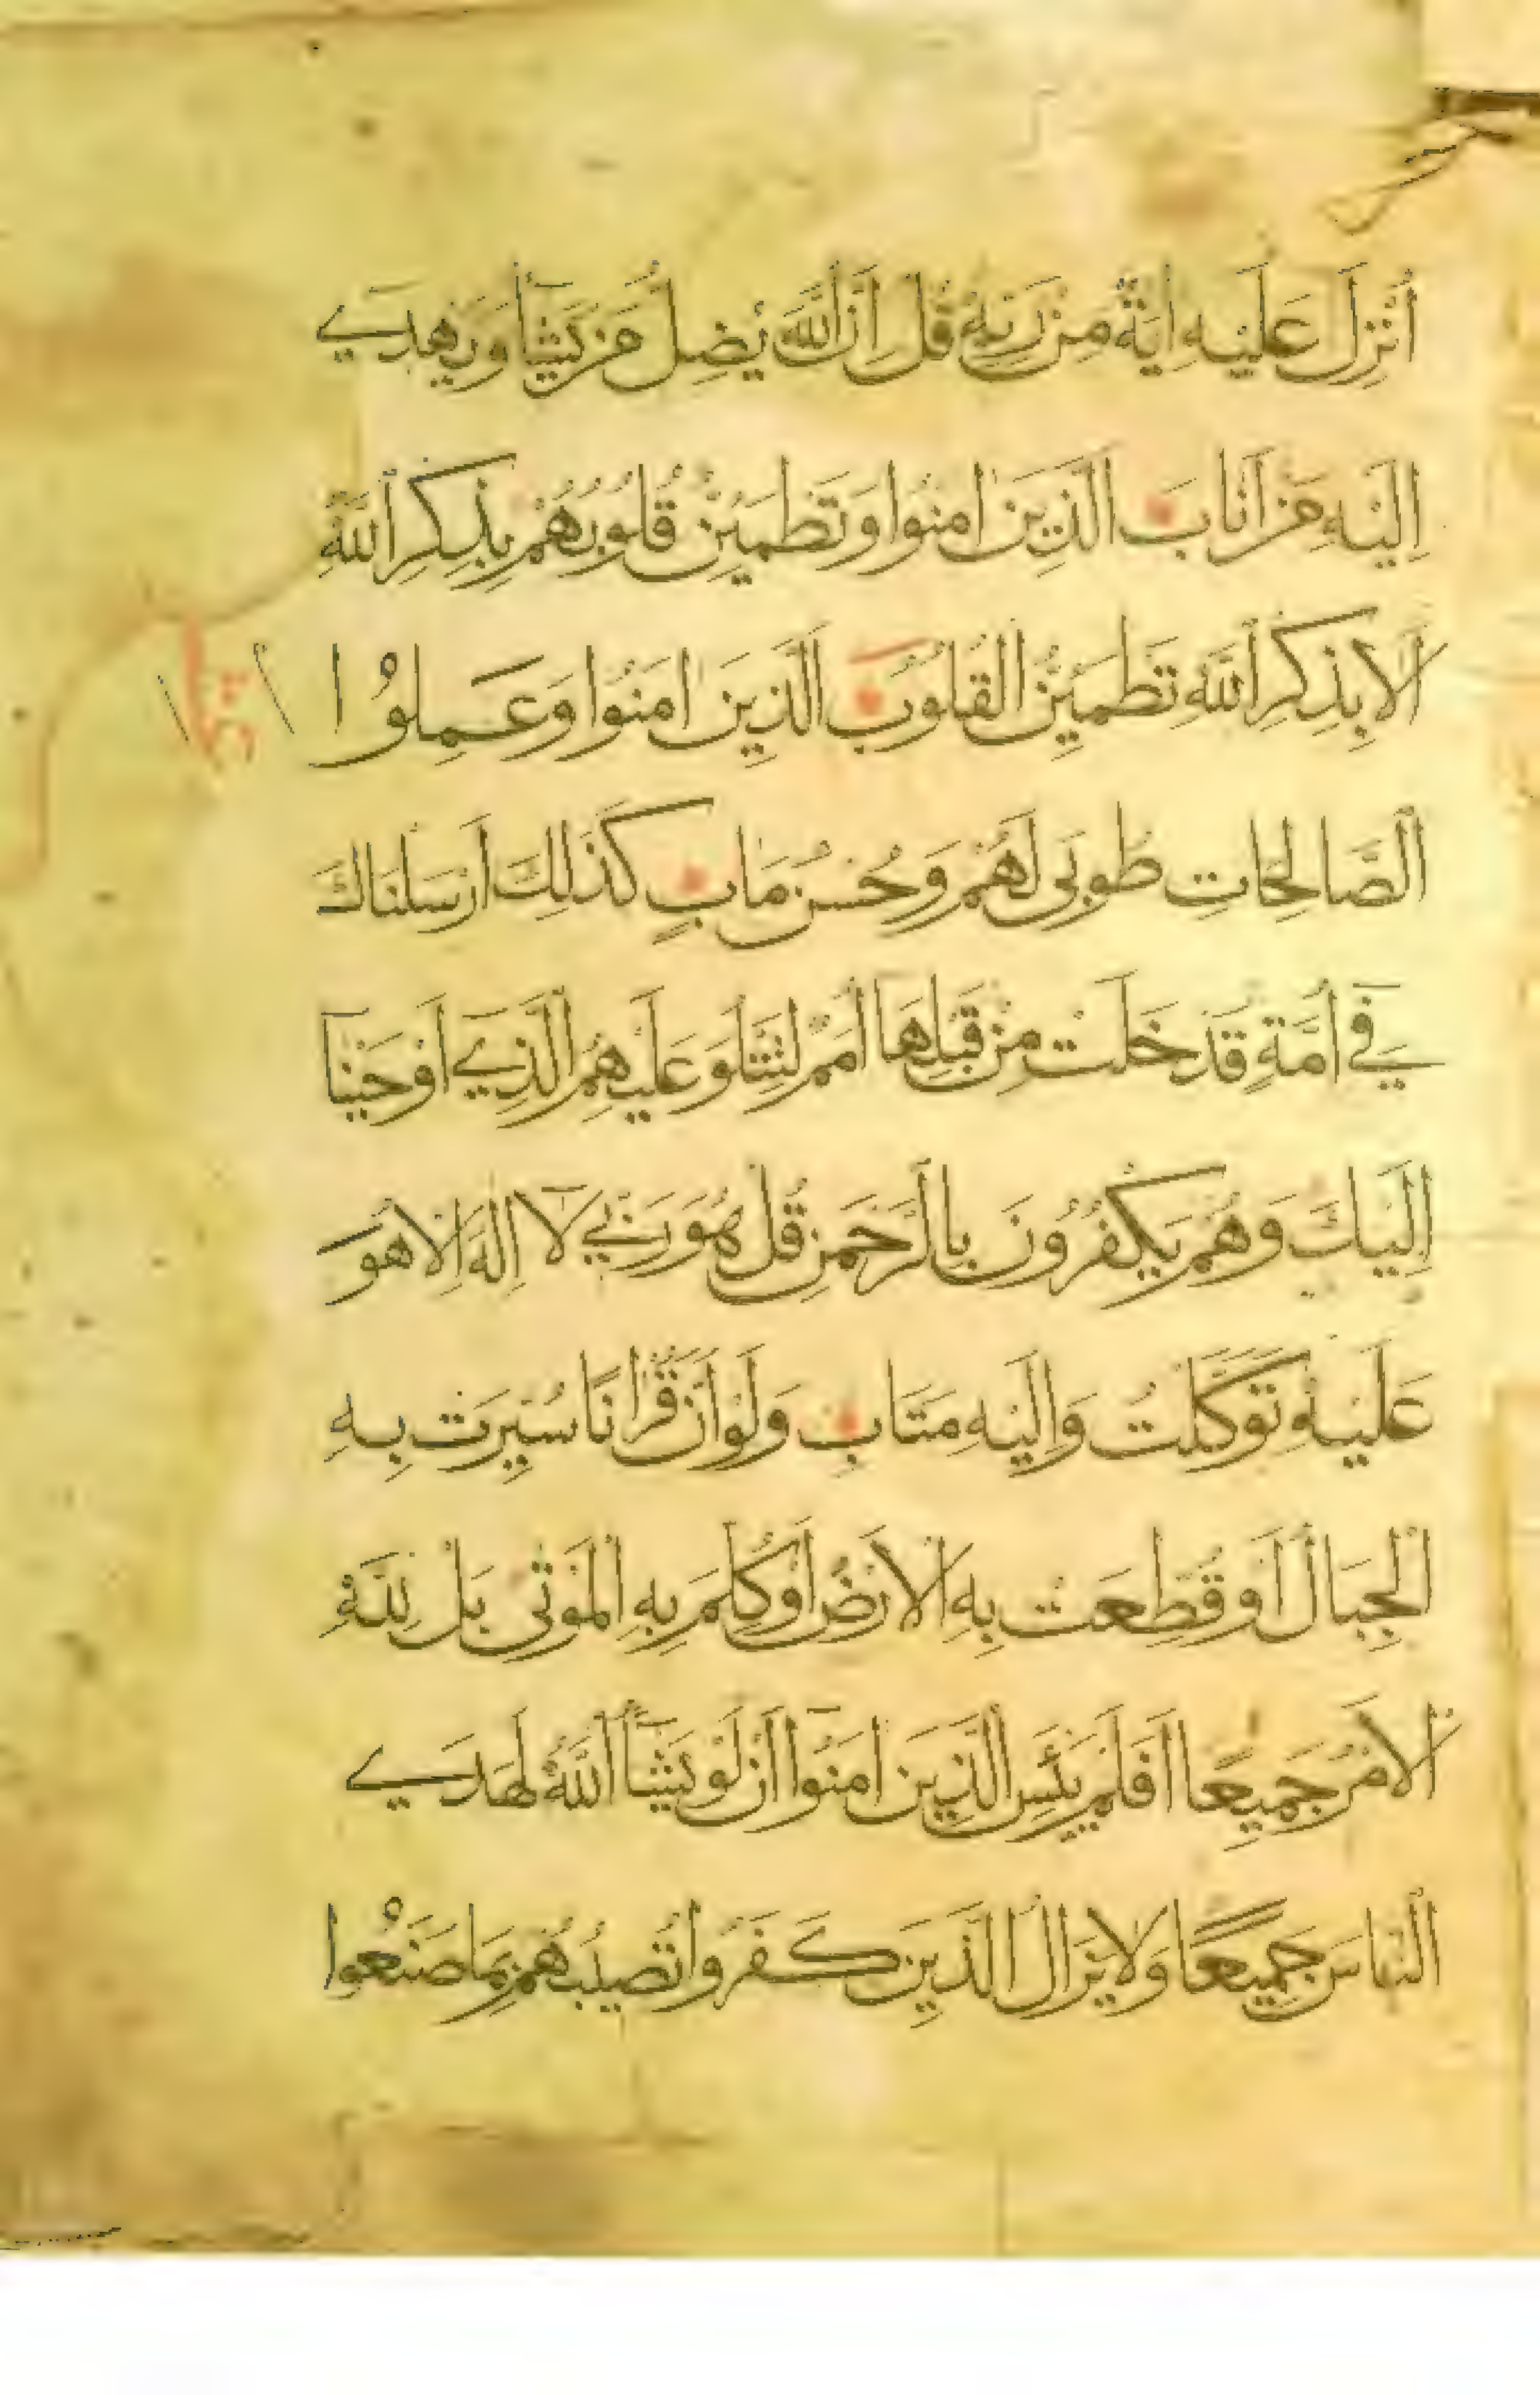 أُنْزِلَ عَلَيْهِ اٰيَةٌ مِنْ رَبِّهٖ قُلْ اِنَّ اللّٰهَ يُضِلُّ مَنْ يَشَآءُ وَيَهْدِي
اِلَيْهِ مَنْ اَنَابَ الَّذِينَ اٰمَنُوا وَتَطْمَئِنُّ قُلُوبُهُمْ بِذِكْرِ اللّٰهِ
اَلَا بِذِكْرِ اللّٰهِ تَطْمَئِنُّ الْقُلُوبُ الَّذِينَ اٰمَنُوا وَعَمِلُوا
الصَّالِحَاتِ طُوبٰى لَهُمْ وَحُسْنُ مَاٰبٍ كَذٰلِكَ اَرْسَلْنَاكَ
فِي اُمَّةٍ قَدْ خَلَتْ مِنْ قَبْلِهَا اُمَمٌ لِتَتْلُوَ عَلَيْهِمُ الَّذِي اَوْحَيْنَا
اِلَيْكَ وَهُمْ يَكْفُرُونَ بِالرَّحْمٰنِ قُلْ هُوَ رَبِّي لَا اِلٰهَ اِلَّا هُوَ
عَلَيْهِ تَوَكَّلْتُ وَاِلَيْهِ مَتَابِ وَلَوْ اَنَّ قُرْاٰنًا سُيِّرَتْ بِهِ
الْجِبَالُ اَوْ قُطِّعَتْ بِهِ الْاَرْضُ اَوْ كُلِّمَ بِهِ الْمَوْتٰى بَلْ لِلّٰهِ
الْاَمْرُ جَمِيعًا اَفَلَمْ يَيْئَسِ الَّذِينَ اٰمَنُوا اَنْ لَوْ يَشَآءُ اللّٰهُ لَهَدَي
النَّاسَ جَمِيعًا وَلَا يَزَالُ الَّذِينَ كَفَرُوا تُصِيبُهُمْ بِمَا صَنَعُوا